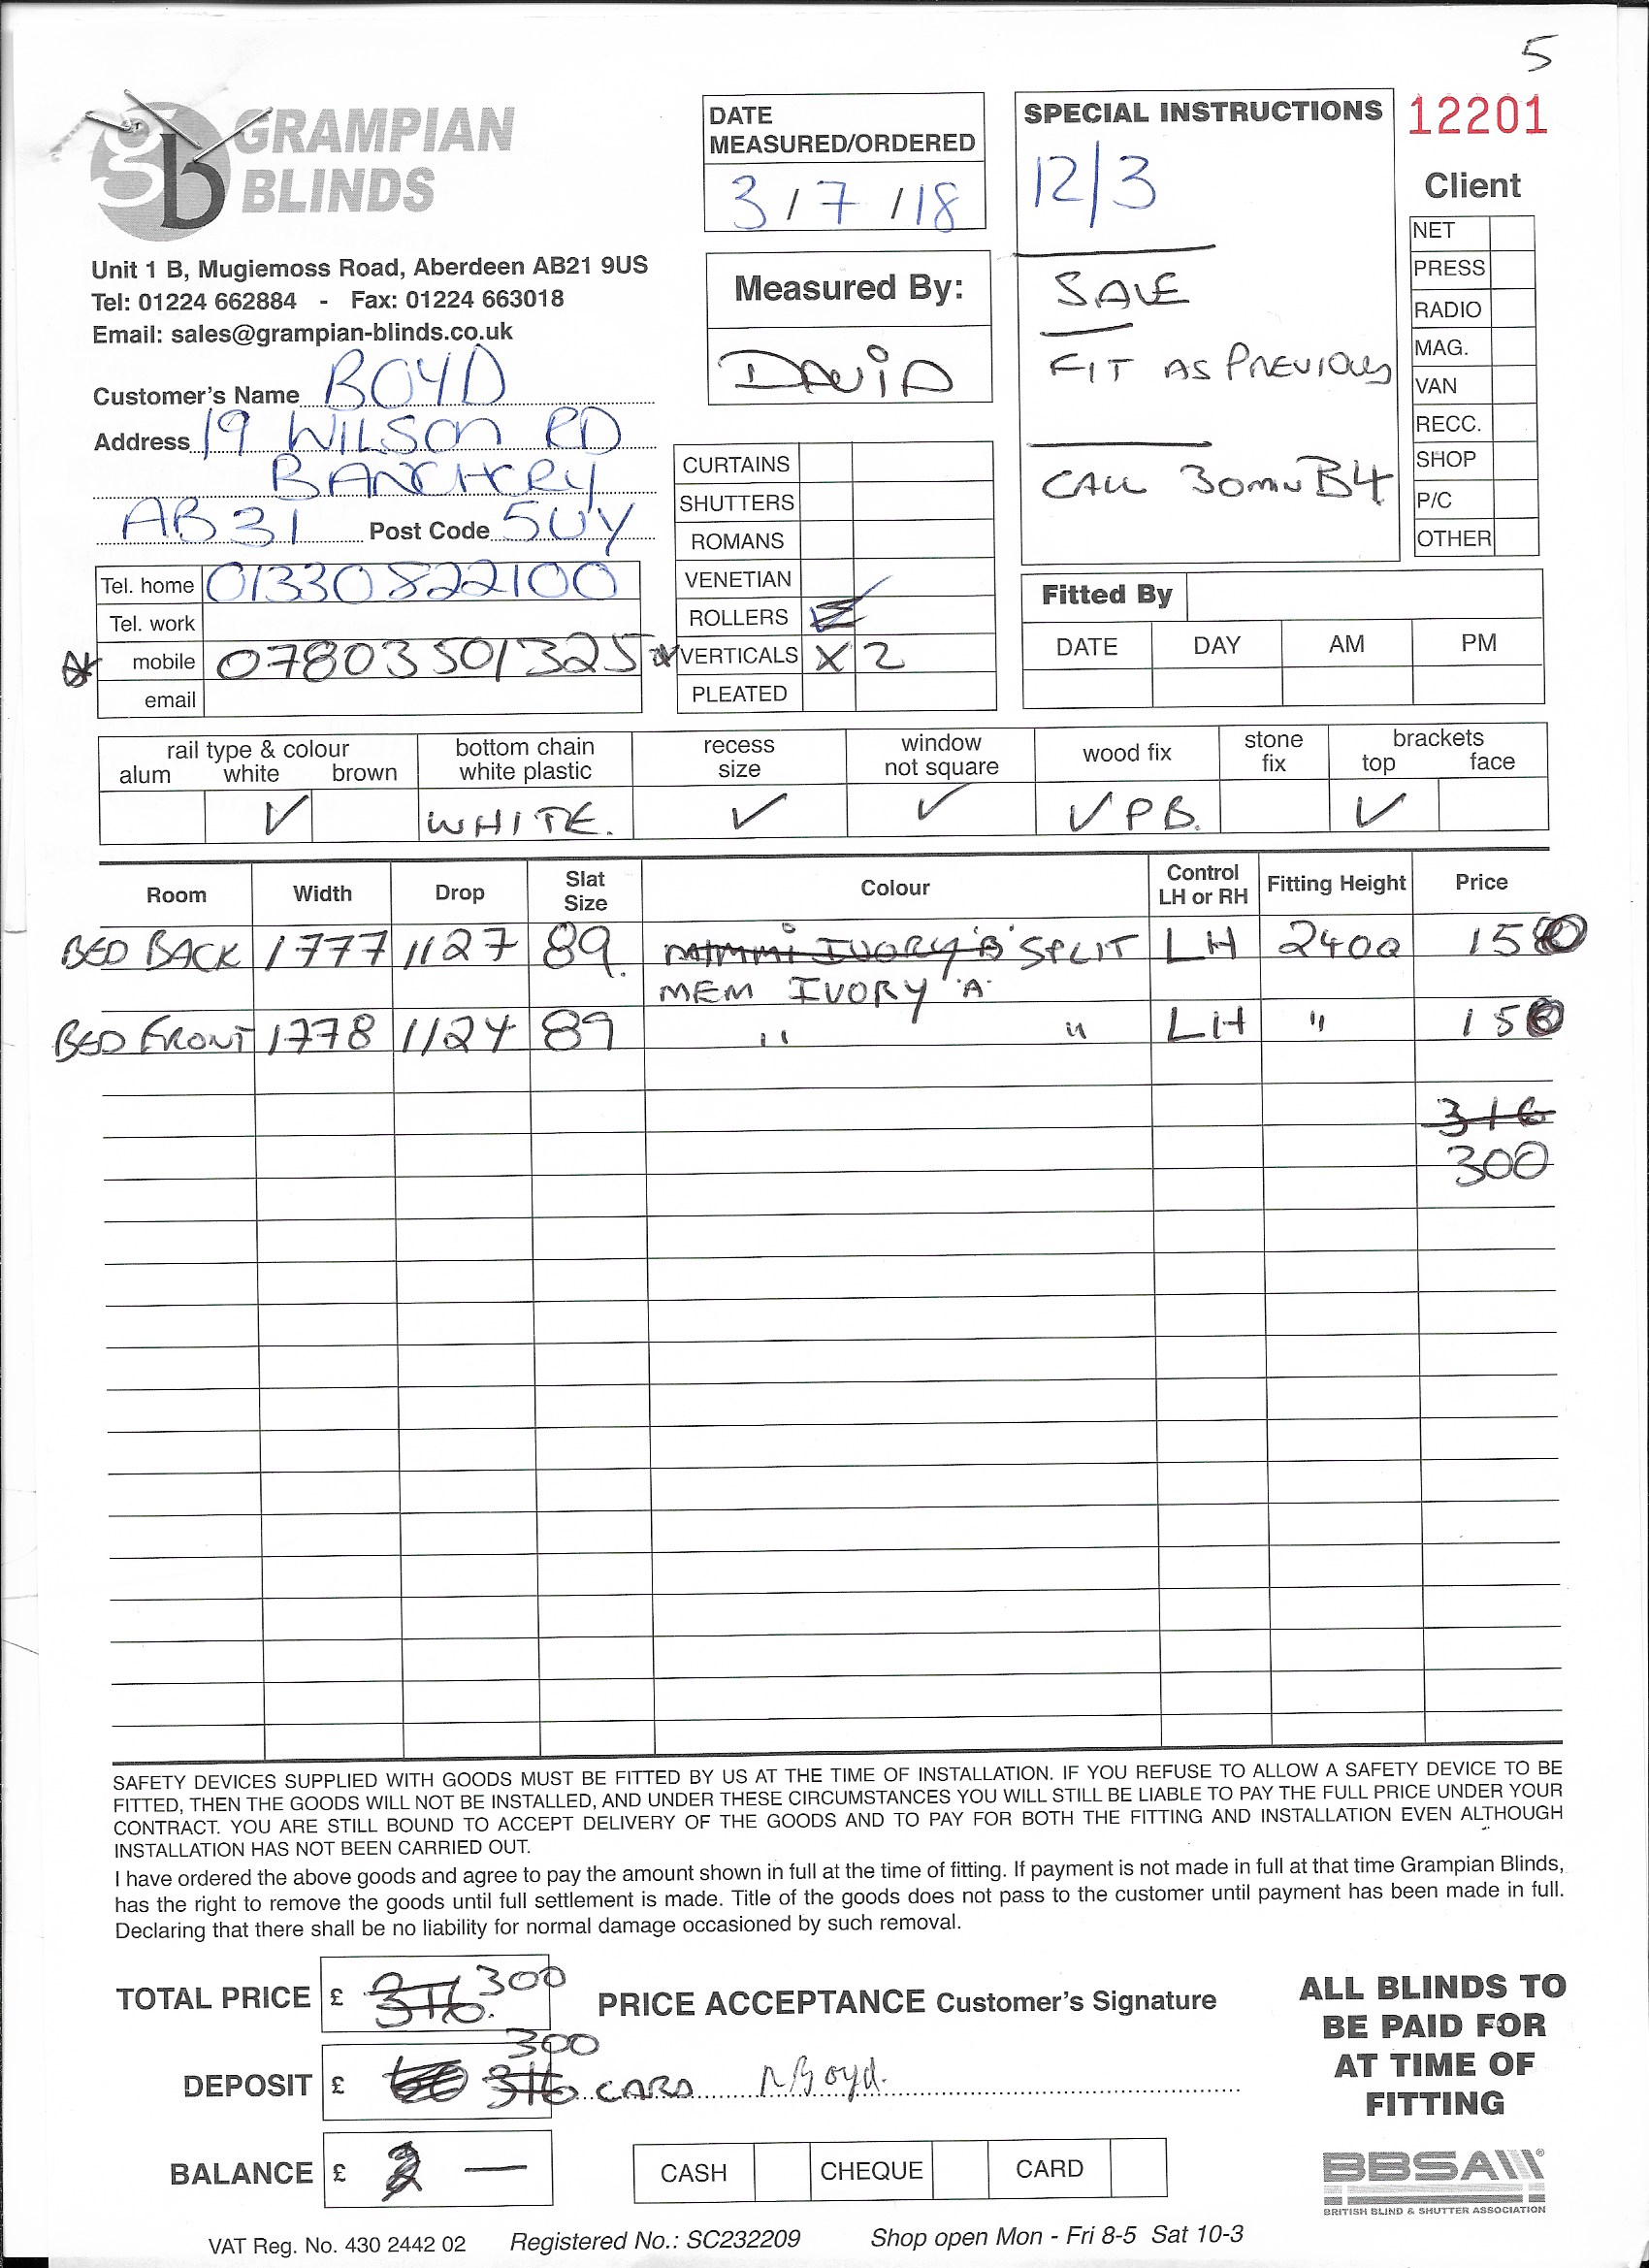 5
GRAMPIAN
BLINDS
Unit 1 B, Mugiemoss Road, Aberdeen AB21 9US
Tel: 01224 662884 - Fax: 01224 663018
Email: sales@grampian-blinds.co.uk
Customer's Name BOYD
Address 19 WILSON RD
BANCHORY
AB31 Post Code 5UY
Tel. home 01330822100
Tel. work
mobile 07803501325
email
DATE
MEASURED/ORDERED
3/7/18
Measured By:
DAViD
CURTAINS
SHUTTERS
ROMANS
VENETIAN
ROLLERS
VERTICALS X 2
PLEATED
SPECIAL INSTRUCTIONS
12/3
SALE
FIT AS PREVIOUS
CALL 30MIN B4
12201
Client
NET
PRESS
RADIO
MAG.
VAN
RECC.
SHOP
P/C
OTHER
Fitted By
DATE DAY AM PM
rail type & colour
alum white brown
bottom chain
white plastic
recess
size
window
not square
wood fix
stone
fix
brackets
top face
✓ WHITE. ✓ ✓ ✓ PB. ✓
Room Width Drop Slat Size Colour Control LH or RH Fitting Height Price
BED BACK 1777 1127 89. MIMMi IVORY 'B' SPLIT LH 2400 150
MEM IVORY 'A'
BED FRONT 1778 1124 89 " " LH " 150
316
300
SAFETY DEVICES SUPPLIED WITH GOODS MUST BE FITTED BY US AT THE TIME OF INSTALLATION. IF YOU REFUSE TO ALLOW A SAFETY DEVICE TO BE
FITTED, THEN THE GOODS WILL NOT BE INSTALLED, AND UNDER THESE CIRCUMSTANCES YOU WILL STILL BE LIABLE TO PAY THE FULL PRICE UNDER YOUR
CONTRACT. YOU ARE STILL BOUND TO ACCEPT DELIVERY OF THE GOODS AND TO PAY FOR BOTH THE FITTING AND INSTALLATION EVEN ALTHOUGH
INSTALLATION HAS NOT BEEN CARRIED OUT.
I have ordered the above goods and agree to pay the amount shown in full at the time of fitting. If payment is not made in full at that time Grampian Blinds,
has the right to remove the goods until full settlement is made. Title of the goods does not pass to the customer until payment has been made in full.
Declaring that there shall be no liability for normal damage occasioned by such removal.
TOTAL PRICE £ 316. 300
PRICE ACCEPTANCE Customer's Signature
300
DEPOSIT £ 316 CARD NBoyd.
BALANCE £ —
CASH CHEQUE CARD
ALL BLINDS TO
BE PAID FOR
AT TIME OF
FITTING
BBSA
BRITISH BLIND & SHUTTER ASSOCIATION
VAT Reg. No. 430 2442 02 Registered No.: SC232209 Shop open Mon - Fri 8-5 Sat 10-3